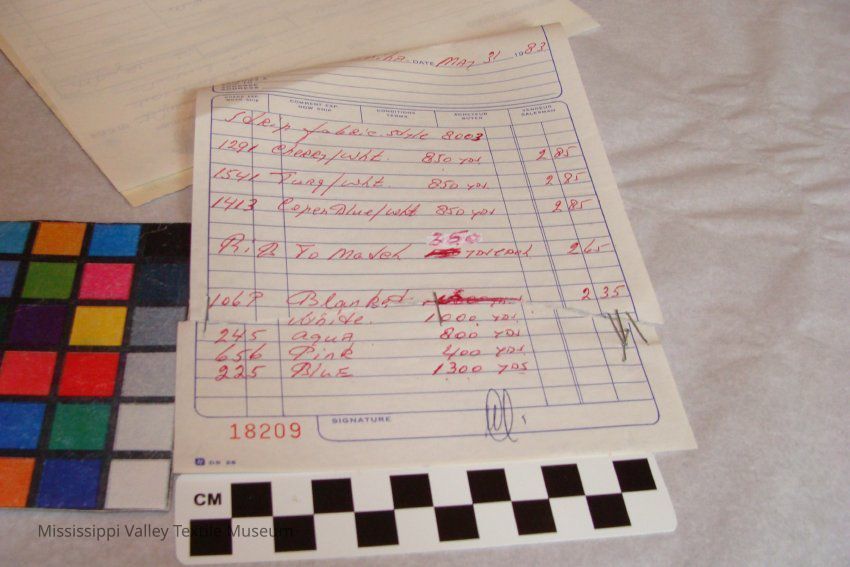 DATE May 31 1983
COMMENT EXP.
HOW SHIP
CONDITIONS
TERMS
ACHETEUR
BUYER
VENDEUR
SALESMAN
Strip fabric. style 8003
1291 Cherry/wht. 850 YDS 2 85
1541 Turq/wht. 850 YDS 2 85
1413 Copen Blue/wht 850 YDS 2 85
350
Rib To Match YDS each 2 65
1069 Blanket 2 35
White. 1000 YDS
245 aqua 800 YDS
656 Pink 400 YDS
225 Blue 1300 YDS
SIGNATURE
18209
CM
Mississippi Valley Textile Museum